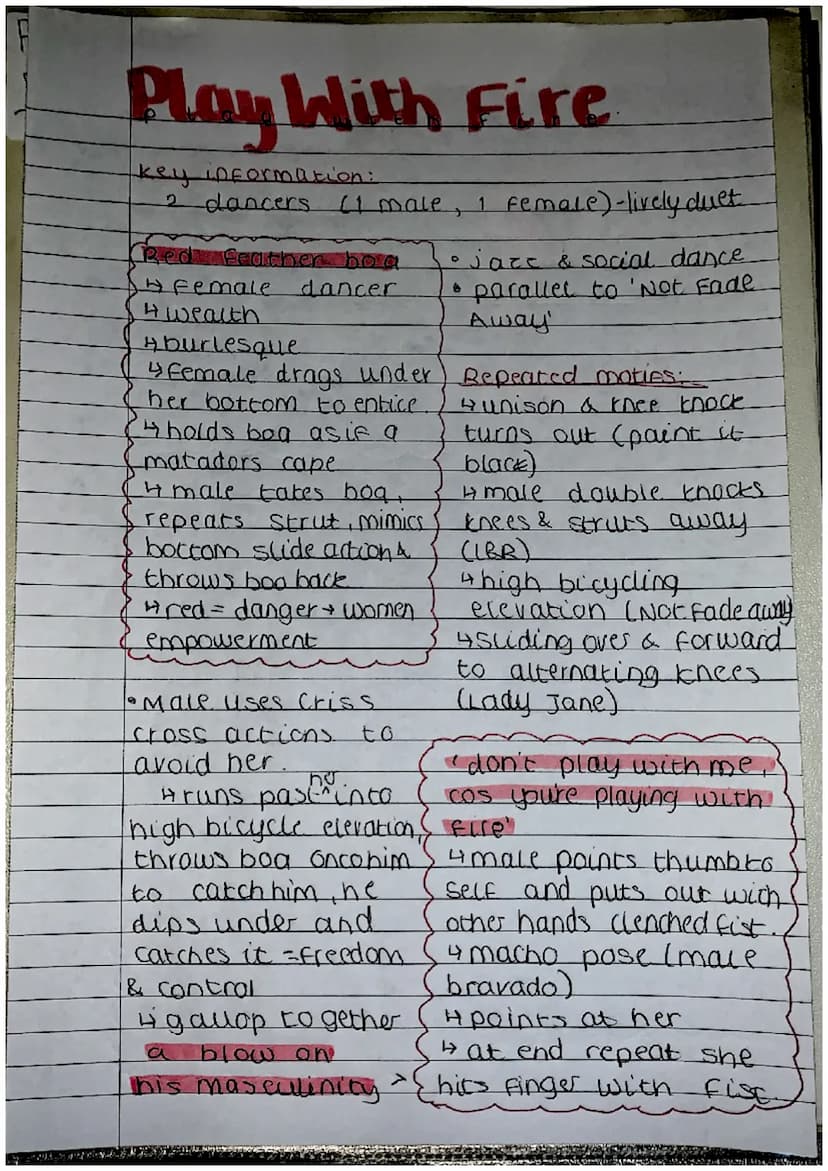 Play With Fire
Key information:
2 dancers (1 male, 1 female)-lively duet
Red feather boa
↳ female dancer
↳ wealth
↳ burlesque
↳ female drags under
her bottom to entice.
↳ holds boa as if a
matadors cape
↳ male takes boa,
repeats strut, mimics
bottom slide action &
throws boa back
↳ red = danger → women
empowerment
• Male uses criss
cross actions to
avoid her.
↳ runs past her into
high bicycle elevation,
throws boa onto him
to catch him, he
dips under and
catches it = freedom
& control
↳ gallop together
a blow on
his masculinity >
• jazz & social dance
• parallel to 'Not Fade
Away'
Repeated motifs:
↳ unison & knee knock
turns out (paint it
black)
↳ male double knocks
knees & struts away
(LBR)
↳ high bicycling
elevation (Not Fade away)
↳ sliding over & forward
to alternating knees
(Lady Jane)
'don't play with me,
cos you're playing with
fire'
↳ male points thumb to
self and puts out with
other hands clenched fist.
↳ macho pose (male
bravado)
↳ points at her
↳ at end repeat she
hits finger with fist.